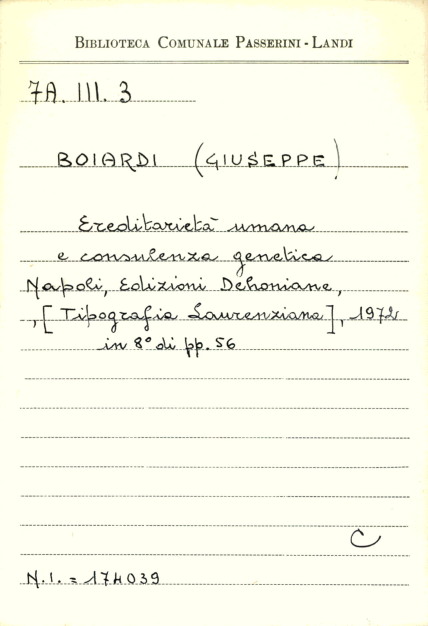 BIBLIOTECA COMUNALE PASSERINI - LANDI
7A. III. 3
BOIARDI (GIUSEPPE)
Ereditarietà umana
e consulenza genetica
Napoli, Edizioni Dehoniane,
,[Tipografia Laurenziana], 1972
in 8° di pp. 56
C
N.I. = 174039